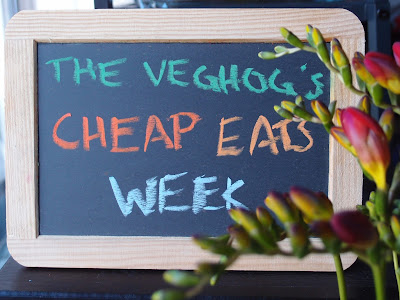 THE VEGHOG's
CHEAP EATS
WEEK